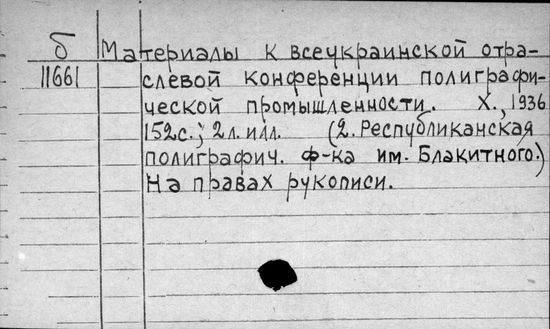 б Материалы к всеукраинской отра-
11661 слевой конференции полиграфи-
ческой промышленности. Х., 1936
152с.; 2л.илл. (2. Республиканская
полиграфич. ф-ка им. Блакитного.)
На правах рукописи.